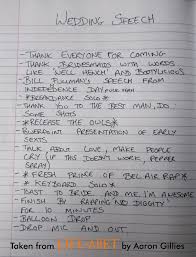 WEDDING SPEECH
- THANK EVERYONE FOR COMING
- THANK BRIDESMAIDS WITH WORDS
LIKE 'WELL HENCH' AND BOOTYLICIOUS
- BILL PULLMAN'S SPEECH FROM
INDEPENDENCE DAY
* BREAKDANCE SOLO *
- THANK YOU TO THE BEST MAN, DO
SOME SHOTS
* RELEASE THE OWLS *
- POWERPOINT PRESENTATION OF EARLY
SEXTS
- TALK ABOUT LOVE, MAKE PEOPLE
CRY (IF THIS DOESN'T WORK, PEPPER
SPRAY)
* FRESH PRINCE OF BEL AIR RAP *
* KEYBOARD SOLO *
- TOAST TO BRIDE AND ME, I'M AWESOME
- FINISH BY RAPPING 'NO DIGGITY'
FOR 10 MINUTES
- BALLOON DROP
- DROP MIC AND OUT
Taken from by Aaron Gillies